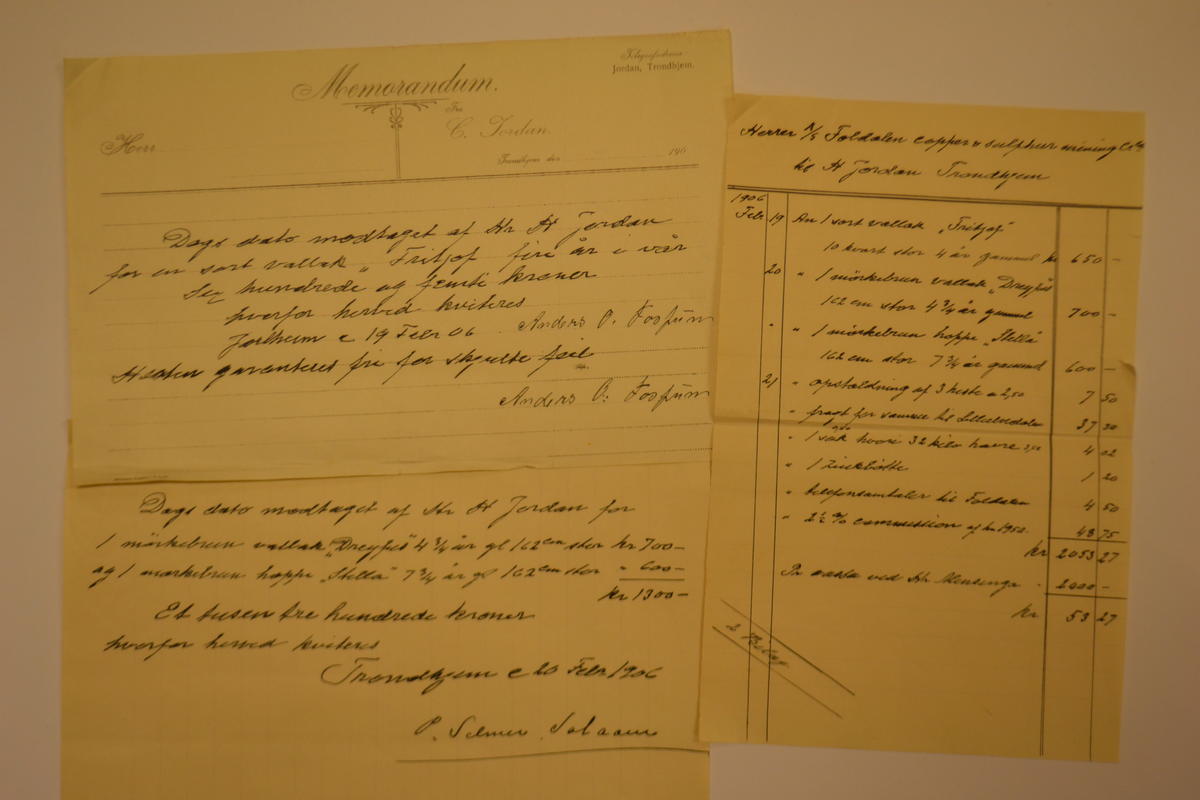 Memorandum.
Telegrafadresse
Jordan, Trondhjem.
Fra
C. Jordan.
Herr
Trondhjem den 190
Dags dato modtaget af Hr H Jordan
for en sort vallak „Fritjof fire år i vår
Sex hundrede og femti kroner
hvorfor herved kviteres
19 Febr 06 Anders O.
Hesten garanteres fri for skjulte feil
Anders O.
Dags dato modtaget af Hr H Jordan for
1 mörkebrun vallak „Dreyfus" 4 3/4 år gl 162 cm stor kr 700—
og 1 mörkebrun hoppe „Stella" 7 3/4 år gl 162 cm stor " 600—
kr 1300—
Et tusen tre hundrede kroner
hvorfor herved kviteres
Trondhjem d 20 Febr 1906
P. Selmer
Herrer A/S Foldalen copper & sulphur mining Co
til H Jordan Trondhjem
1906
Febr 19 An 1 sort vallak „Fritjof"
10 kvart stor 4 år gammel kr 650 —
20 " 1 mörkebrun vallak „Dreyfus
162 cm stor 4 3/4 år gammel 700 —
" " 1 mörkebrun hoppe „Stella"
162 cm stor 7 3/4 år gammel 600 —
21 " opstaldning af 3 heste a 2,50 7 50
" fragt for samme til Lilleelvedalen 37 30
" 1 sæk hvori 32 kilo havre 4 02
" 1 Zinkbötte 1 20
" telefonsamtaler til Foldalen 4 50
" 2½ % commission af kr 1950.- 48 75
kr 2053 27
Pr casta ved Hr " 2000 —
kr 53 27
2 Bilag